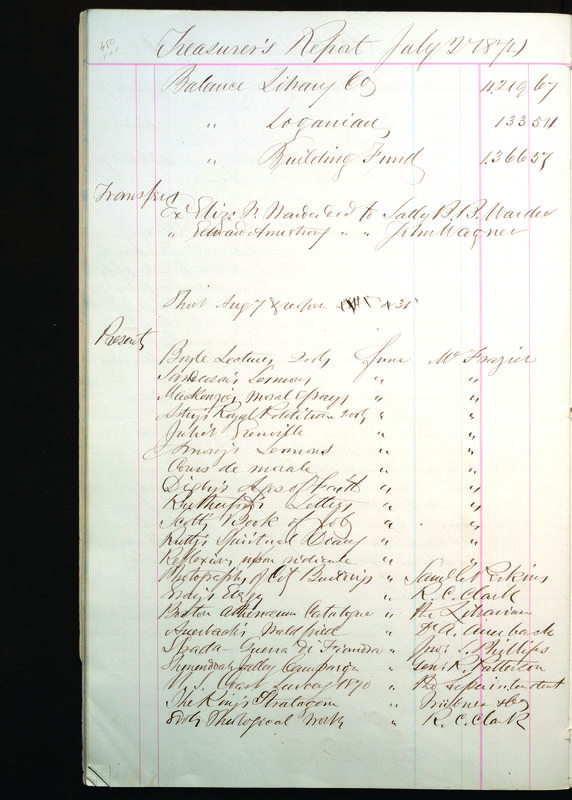 Treasurer's Report July 2 1874
Balance Library Co 4.219 67
" Loganian 133 54
" Building Fund 1.366 57
Transfers
Ex Eliza N. Warder dec'd to Sally B. B. Warder
" Edward Armstrong " " John Wagner
Shut Aug 7 & reopen 31
Presents
Boyle Lectures 2 vols June Mr Frazier
Sermons " "
MacKenzie's Moral Essays " "
Royal 2 vols " "
Juliet Grenville " "
Emory's Sermons " "
Cours de morale " "
Digby's Ages of faith " "
Rutherford's Letters " "
Scott's Book of Job " "
Rutty's Spiritual Diary " "
Reflexions upon ridicule " "
Photographs of Cit Buildings " Saml C Perkins
Gray's Elegy " R. C. Clark
Boston Athenaeum Catalogue " the Librarian
Auerbach's Waldfried " Dr A. Auerbach
Strada - Guerra de Fiandra " Jno: S. Phillips
Shenandoah Valley Campaign " Genl R. Patterson
U.S. Coast Survey 1870 " the superintendent
The King's Stratagem " & Co
Theological Works " R. C. Clark